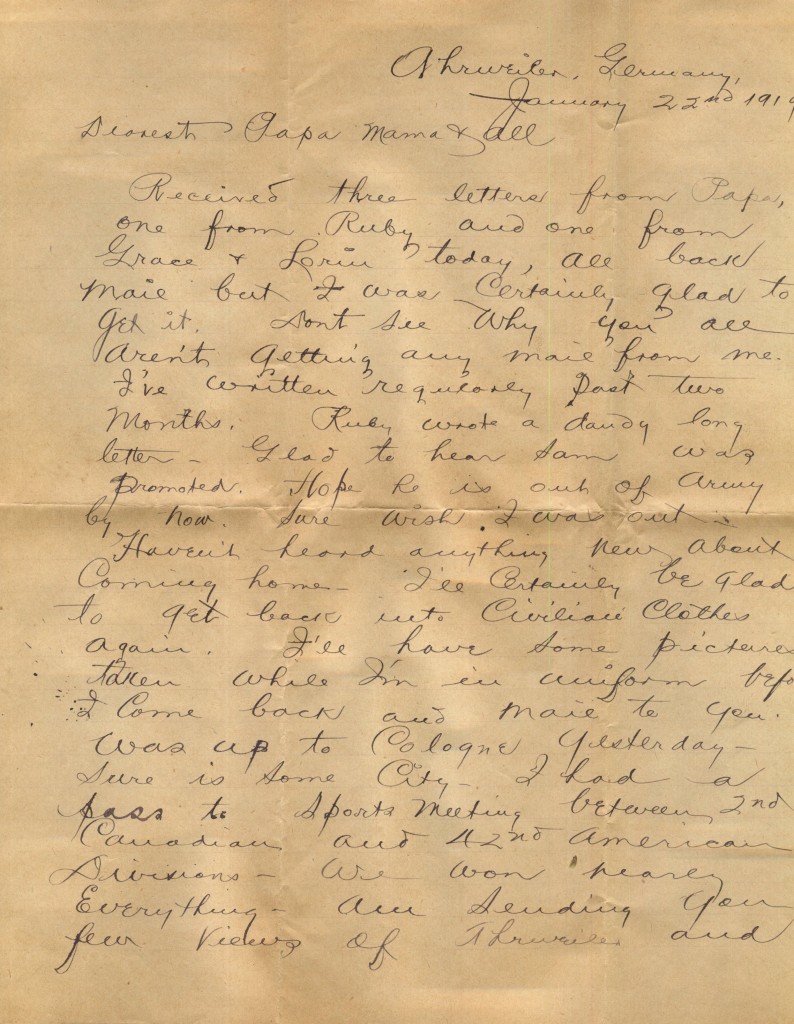 Ahrweiler, Germany,
January 22nd 1919
Dearest Papa Mama & all
Received three letters from Papa,
one from Ruby and one from
Grace & Lorin today, all back
mail but I was certainly glad to
get it. Dont see why you all
aren't getting any mail from me.
I've written regularly past two
months. Ruby wrote a dandy long
letter - Glad to hear Sam was
promoted. Hope he is out of Army
by now. Sure wish I was out.
Haven't heard anything new about
coming home - I'll certainly be glad
to get back into Civilian Clothes
again. I'll have some pictures
taken while I'm in uniform befo
I come back and mail to you.
Was up to Cologne yesterday -
Sure is some City - I had a
pass to Sports Meeting between 2nd
Canadian and 42nd American
Divisions - We won nearly
Everything - Am sending you
few views of Ahrweiler and